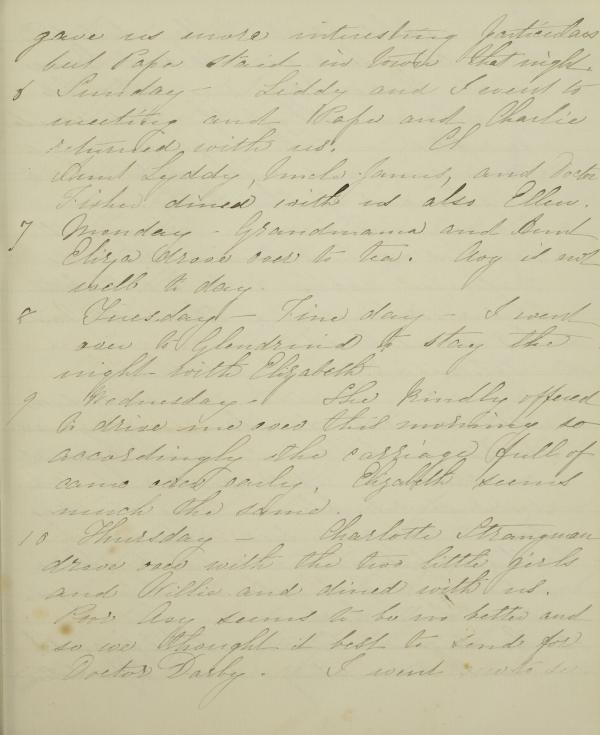 gave us more interesting particulars
but Papa staid in town that night.
6 Sunday - Liddy and I went to
meeting and Papa and Charlie
returned with us. Ch
Aunt Lyddy, Uncle James, and Doctor
Fisher dined with us also Ellen.
7 Monday - Grandmama and Aunt
Eliza drove over to tea. Avy is not
well to day.
8 Tuesday - Fine day - I went
over to to stay the
night with Elizabeth
9 Wednesday - She kindly offered
to drive me over this morning so
accordingly the carriage full of
came over early. Elizabeth seems
much the same.
10 Thursday - Charlotte
drove over with the two little girls
and Willie and dined with us.
Poor Avy seems to be no better and
so we thought it best to send for
Doctor Darby. I went